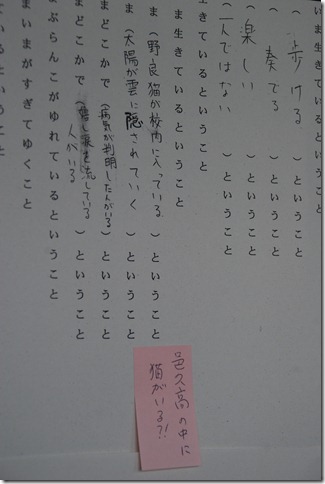 いま生きているということ
（歩ける）ということ
（奏でる）ということ
（楽しい）ということ
（一人ではない）ということ
生きているということ
ま生きているということ
ま（野良猫が校内に入っている）ということ
ま（太陽が雲に隠されていく）ということ
まどこかで（病気が判明した人がいる）ということ
まどこかで（悔し涙を流している人がいる）ということ
まぶらんこがゆれているということ
まいまがすぎてゆくこと
いるということ
邑久高の中に
猫がいる?!